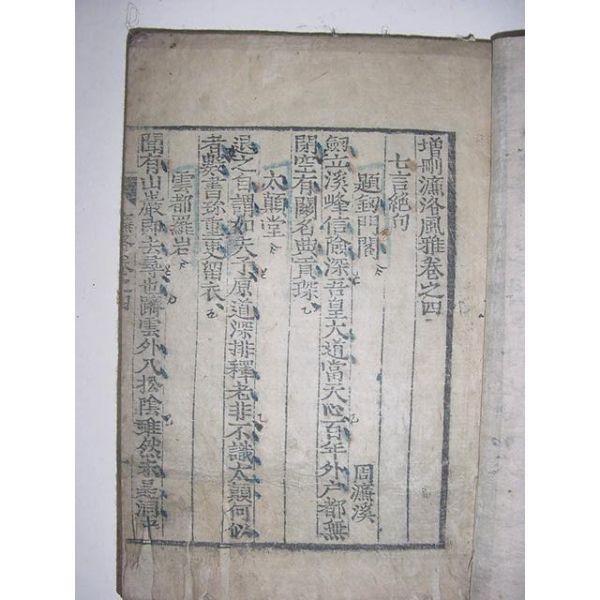 增刪濂洛風雅卷之四
七言絕句
題劔門閣 周濂溪
劔立溪峰信險深吾皇大道當天心百年外户都無
閉空有關名典貢琛
太顛堂
退之自謂如夫子原道深排釋老非不識太顛何似
者數書珎重更留衣
雲都羅岩
聞有山巖即去尋也躋雲外入松陰雖然未是洞中